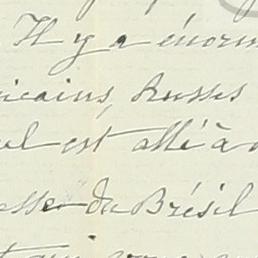 Il y a énorm
icains, Russes
el est allé à
esse du Brésil